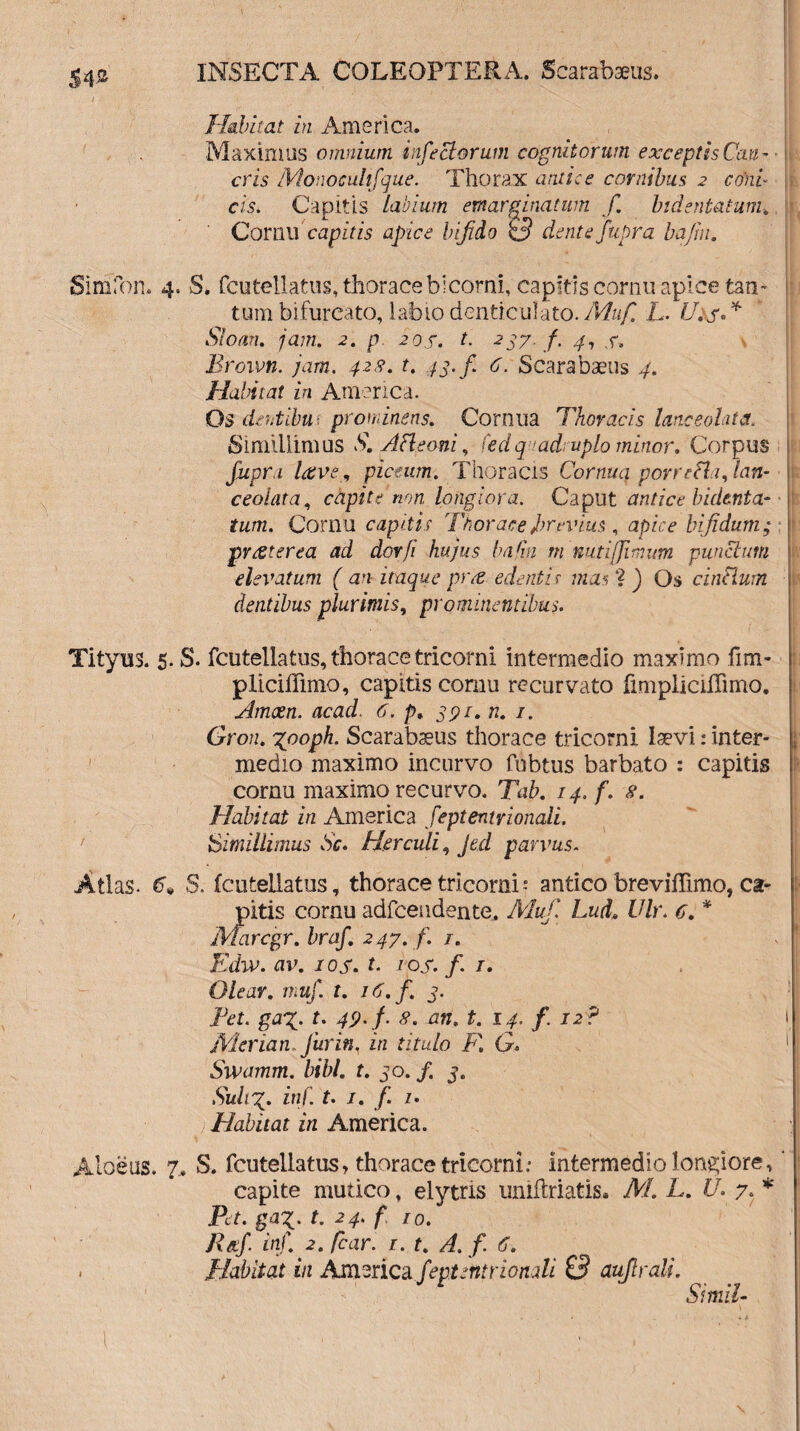 542 INSECTA COLEOPTERA. Scarabæus.
Habitat in America.
Maximus omnium inſectorum cognitorum exceptis Can-
cris Monoculiſque. Thorax antice cornibus 2 coni-
cis. Capitis labium emarginatum ſ. bidentatum.
Cornu capitis apice bifido & dente ſupra baſin.
Simſon. 4. S. ſcutellatus, thorace bicorni, capitis cornu apice tan-
tum bifurcato, labio denticulato. Muſ. L. U. 5. *
Sloan. jam. 2. p. 205. t. 237. f. 4, 5.
Brown. jam. 428. t. 43. f. 6. Scarabæus 4.
Habitat in America.
Os dentibus prominens. Cornua Thoracis lanceolata.
Simillimus S. Acteoni, ſed quadruplo minor. Corpus
ſupra læve, piceum. Thoracis Cornua porrecta, lan-
ceolata, capite non longiora. Caput antice bidenta-
tum. Cornu capitis Thorace brevius, apice bifidum;
præterea ad dorſi hujus baſin m nutiſſimum punctum
elevatum ( an itaque præ edentis mas ? ) Os cinctum
dentibus plurimis, prominentibus.
Tityus. 5. S. ſcutellatus, thorace tricorni intermedio maximo ſim-
pliciſſimo, capitis cornu recurvato ſimpliciſſimo.
Amœn. acad. 6. p. 391. n. 1.
Gron. zooph. Scarabæus thorace tricorni lævi : inter-
medio maximo incurvo ſubtus barbato : capitis
cornu maximo recurvo. Tab. 14. f. 8.
Habitat in America ſeptentrionali.
Simillimus Sc. Herculi, ſed parvus.
Atlas. 6. S. ſcutellatus, thorace tricorni: antico breviſſimo, ca-
pitis cornu adſcendente. Muſ. Lud. Ulr. 6. *
Marcgr. braſ. 247. f. 1.
Edw. av. 105. t. 105. f. 1.
Olear. muſ. t. 16. f. 3.
Pet. gaz. t. 49. f. 8. an. t. 14. f. 12?
Merian. ſurin. in titulo F. G.
Swamm. bibl. t. 30. f. 3.
Sulz. inſ. t. 1. f. 1.
Habitat in America.
Aloëus. 7. S. ſcutellatus, thorace tricorni: intermedio longiore,
capite mutico, elytris uniſtriatis. M. L. U. 7. *
Pet. gaz. t. 24. f. 10.
Ræſ. inſ. 2. ſcar. 1. t. A. f. 6.
Habitat in America ſeptentrionali & auſtrali.
Simil-